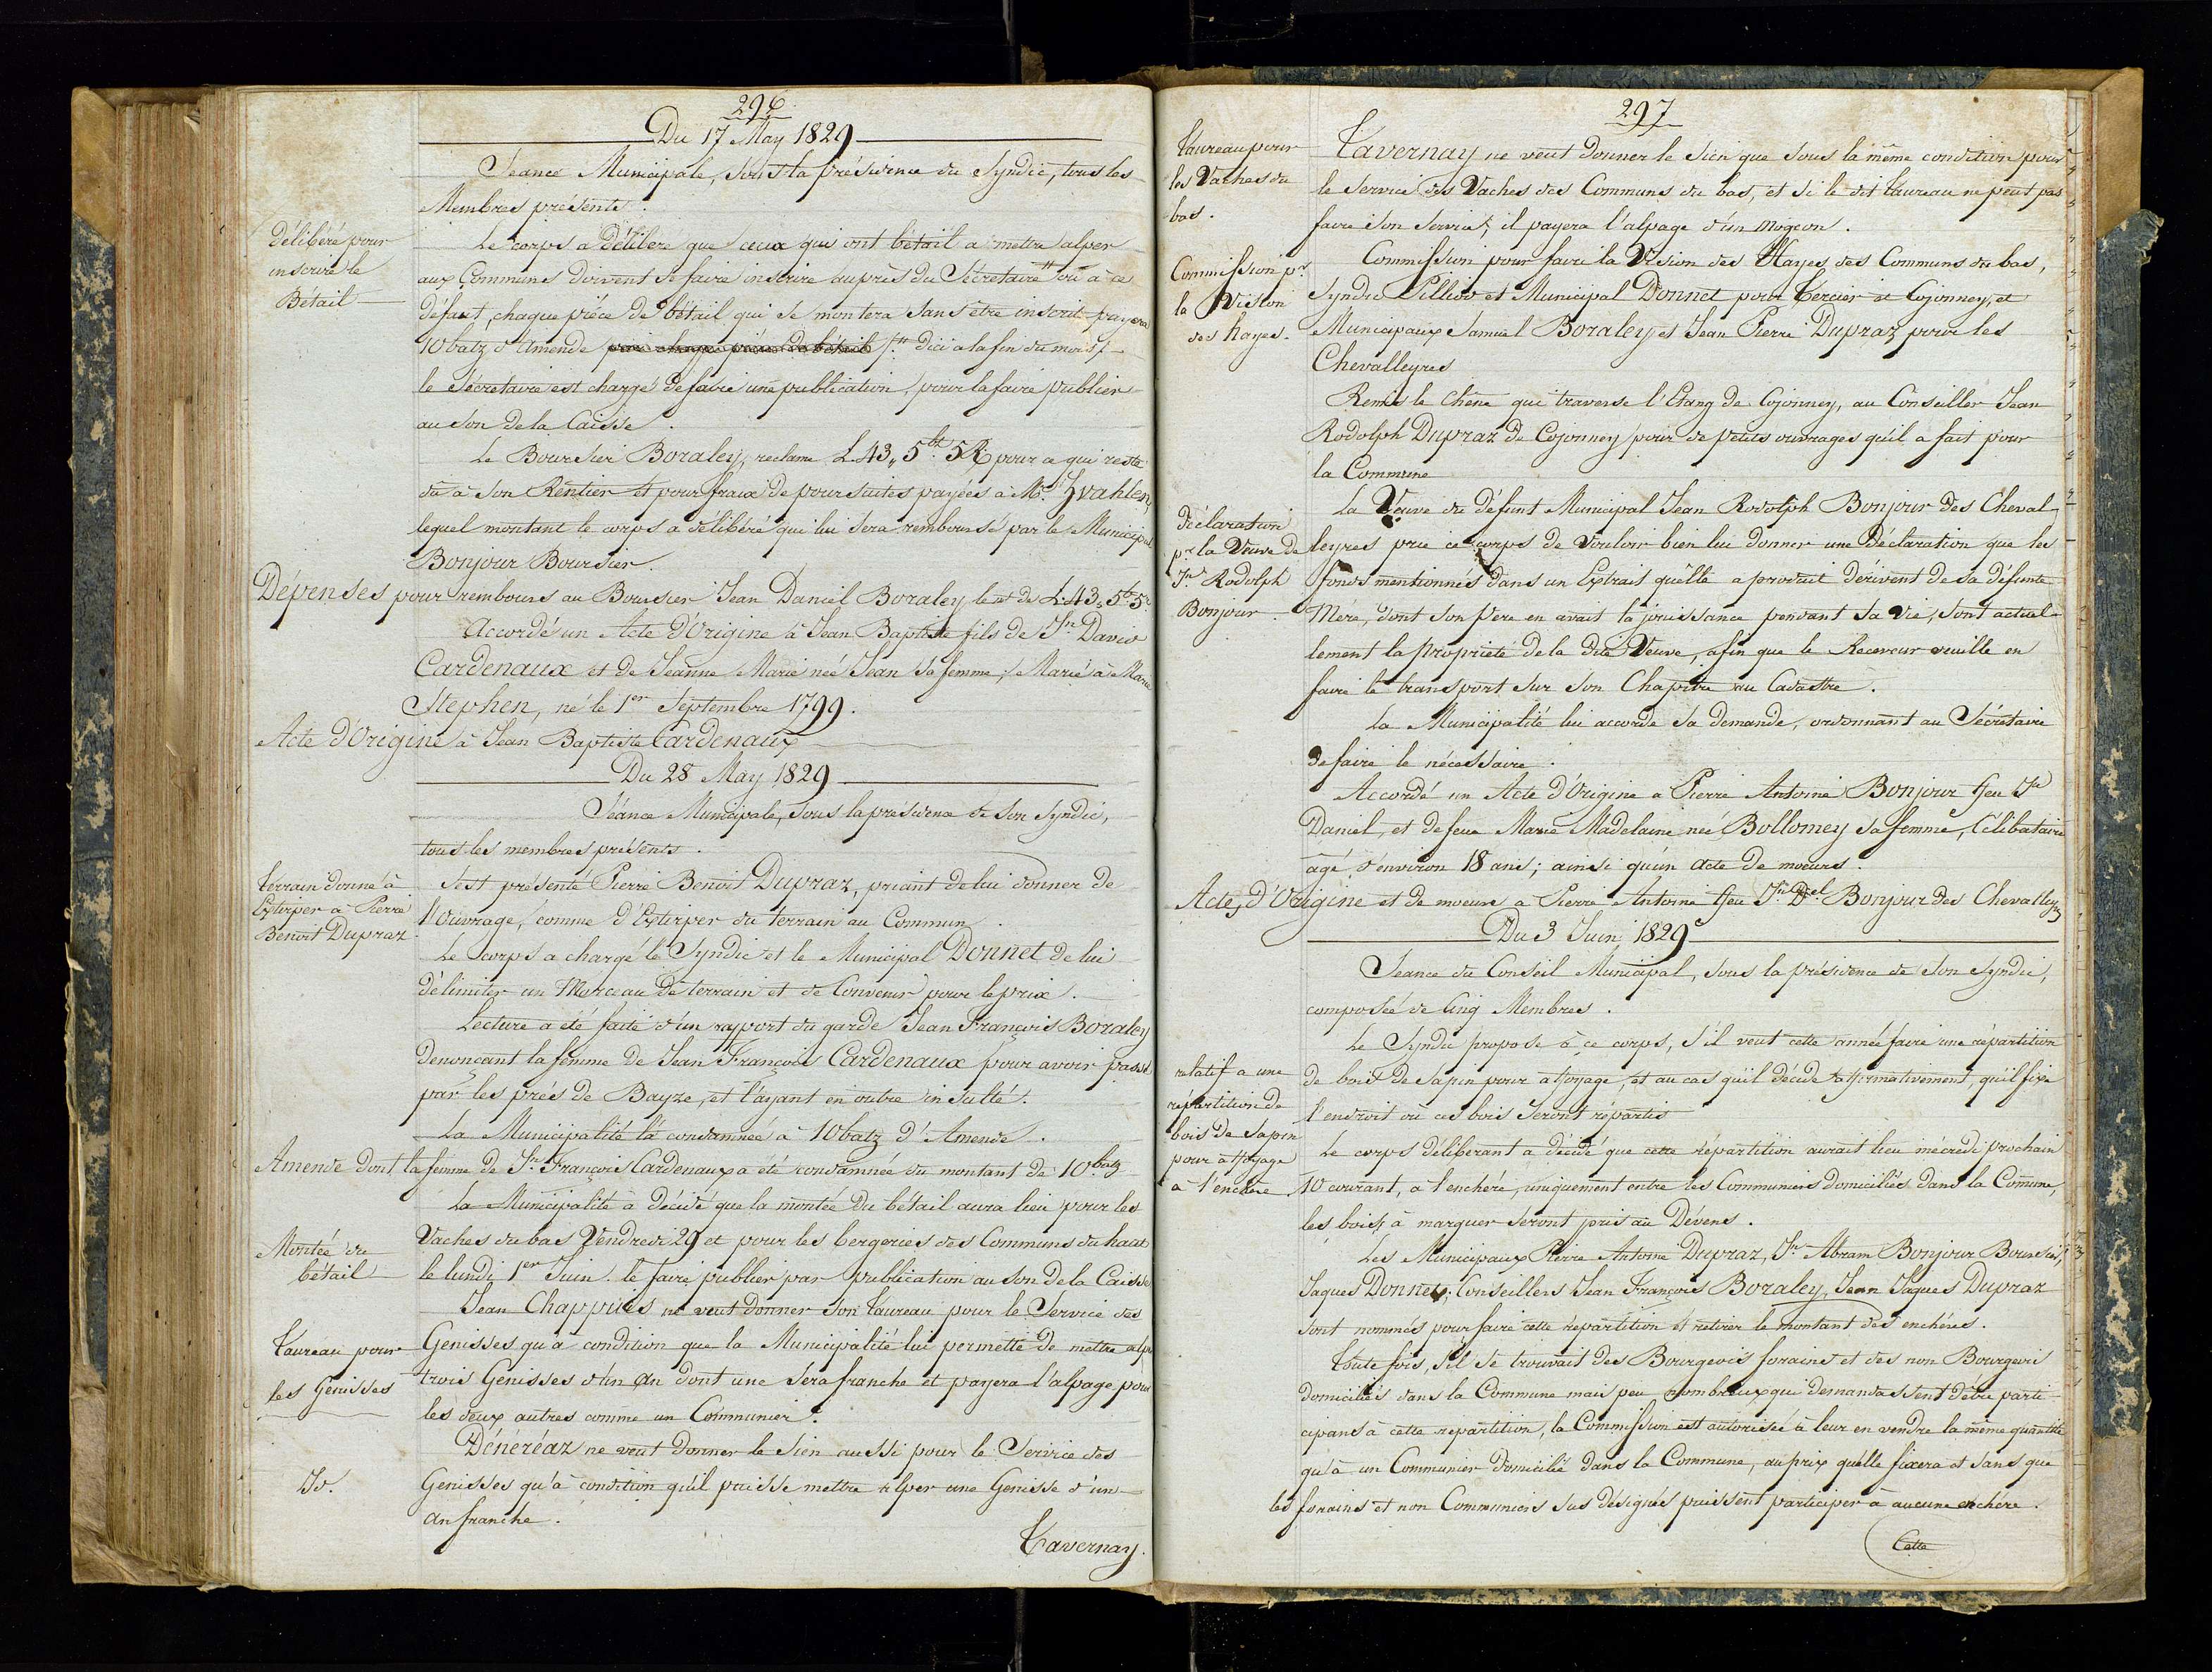 296
Du 17 May 1829
Séance Municipale, sous la présidence du Syndic, tous les
Membres présents.
Délibéré pour
inscrire le
Bétail
Le corps a délibéré que ceux qui ont bétail a mettre alper
aux Communs doivent se faire inscrire auprès du Sécretaire ou à ce
défaut, chaque piéce de bétail qui se montera sans être inscrit payera
10 batz d'Amende pour chaque piéce de bétail d'ici a la fin du mois
le Sécretaire est chargé de faire une publication, pour la faire publier
au son de la Caisse.
Le Boursier Boraley, reclame L. 43,, 5 bz 5 R pour ce qui reste
dû à son Rentier et pour fraix de poursuites payées à Mr. Zvahlen,
lequel montant le corps a délibéré qui lui sera remboursé par le Municipal
Bonjour Boursier.
Dépenses pour rembours au Boursier Jean Daniel Boraley les de L. 43,, 5 bz 5 r
Accordé un Acte d'Origine à Jean Baptiste fils de Jn David
Cardenaux et de Jeanne Marie née Jean sa femme; Marié à Marie
Stephen, né le 1er Septembre 1799.
Acte d'Origine à Jean Baptiste Cardenaux
Du 28 May 1829
Séance Municipale, sous la présidence de son Syndic,
tous les membres présents.
Terrain donné à
Extirper a Pierre
Benoit Dupraz
S'est présenté Pierre Benoit Dupraz, priant de lui donner de
l'ouvrage, comme d'Extirper du terrain au Commun.
Le corps a chargé le Syndic et le Municipal Donnet de lui
délimiter un Morceau de terrain et de Convenir pour le prix.
Lecture a été faite d'un rapport du garde Jean François Boraley
denonçant la femme de Jean François Cardenaux pour avoir passé
par les prés de Bayze, et l'ayant en outre insulté.
La Municipalité l'a condamnée à 10 batz d'Amende.
Amende dont la femme de Jn François Cardenaux a été condamnée du montant de 10 batz
La Municipalité a décidé que la montée du bétail aura lieu pour les
Montée du
bétail
Vaches du bas Vendredi 29 et pour les bergeries des Communs du haut
le lundi 1er Juin. le faire publier par publication au son de la Caisse
Jean Chappuis ne veut donner son taureau pour le Service des
Taureau pour
les Genisses
Genisses qu'a condition que la Municipalité lui permette de mettre alper
trois Genisses d'un an dont une sera franche et payera l'alpage pour
les deux autres comme un Communier.
Dénéréaz ne veut donner le sien aussi pour le Service des
Id.
Genisses qu'à condition qu'il puisse mettre alper une Genisse d'un
an franche.
Tavernay.
297
Taureau pour
les Vaches du
bas.
Tavernay ne veut donner le sien que sous la même condition pour
le service des Vaches des Communs du bas, et si le dit taureau ne peut pas
faire son service, il payera l'alpage d'un mogeon.
Commission pr
la Vision
des hayes.
Commission pour faire la Vision des Hayes des Communs du bas,
Syndic Pilliod et Municipal Donnet pour Tercier et Cojonney, et
Municipaux Samuel Boraley et Jean Pierre Dupraz pour les
Chevalleyres
Remis le chêne qui traverse l'Etang de Cojonney, au Conseiller Jean
Rodolph Dupraz de Cojonney pour de petits ouvrages qu'il a fait pour
la Commune
Déclaration
pr la Veuve de
Jn Rodolph
Bonjour
La Veuve du défunt Municipal Jean Rodolph Bonjour des Cheval-
leyres prie ce corps de vouloir bien lui donner une Déclaration que les
fonds mentionnés dans un Extrait qu'elle a produit dérivent de sa défunte
Mere, dont son Pere en avait la jouissance pendant sa vie, sont actuel-
lement la propriété de la dite Veuve, afin que le Receveur veuille en
faire le transport sur son Chapitre au Cadastre.
La Municipalité lui accorde sa demande, ordonnant au Sécretaire
de faire le nécessaire.
Accordé un Acte d'Origine a Pierre Antoine Bonjour feu Jn
Daniel, et de feue Marie Madelaine née Bollomey sa femme, Célibataire
âgé d'environ 18 ans; ainsi qu'un acte de moeurs.
Actes d'Origine et de moeurs a Pierre Antoine feu Jn Del Bonjour des Chevalleyres
Du 3 Juin 1829
Séance du Conseil Municipal, sous la présidence de son Syndic,
composée de Cinq Membres.
relatif a une
repartition de
bois de sapin
pour affoyage
a l'enchère.
Le Syndic propose à ce corps, s'il veut cette année faire une répartition
de bois de sapin pour affoyage, et au cas qu'il décide affirmativement, qu'il fixe
l'endroit où ces bois seront répartis
Le corps déliberant a décidé que cette répartition aurait lieu mécredi prochain
10 courant, a l'enchére, uniquement entre les Communiers domiciliés dans la Commune,
les bois à marquer seront pris au Dévens.
Les Municipaux Pierre Antoine Dupraz, Jn Abram Bonjour Boursier,
Jaques Donnet; Conseillers Jean François Boraley, Jean Jaques Dupraz
sont nommés pour faire cette repartition et retirer le montant des enchéres.
Toute fois, s'il se trouvait des Bourgeois forains et des non Bourgeois
domiciliés dans la Commune mais peu nombreux qui demandassent d'être parti-
cipans à cette repartition, la Commission est autorisée à leur en vendre la même quantité
qu'à un Communier domicilié dans la Commune, au prix quelle fixera et sans que
les forains et non Communiers sus désignés puissent participer à aucune enchére.
Cette